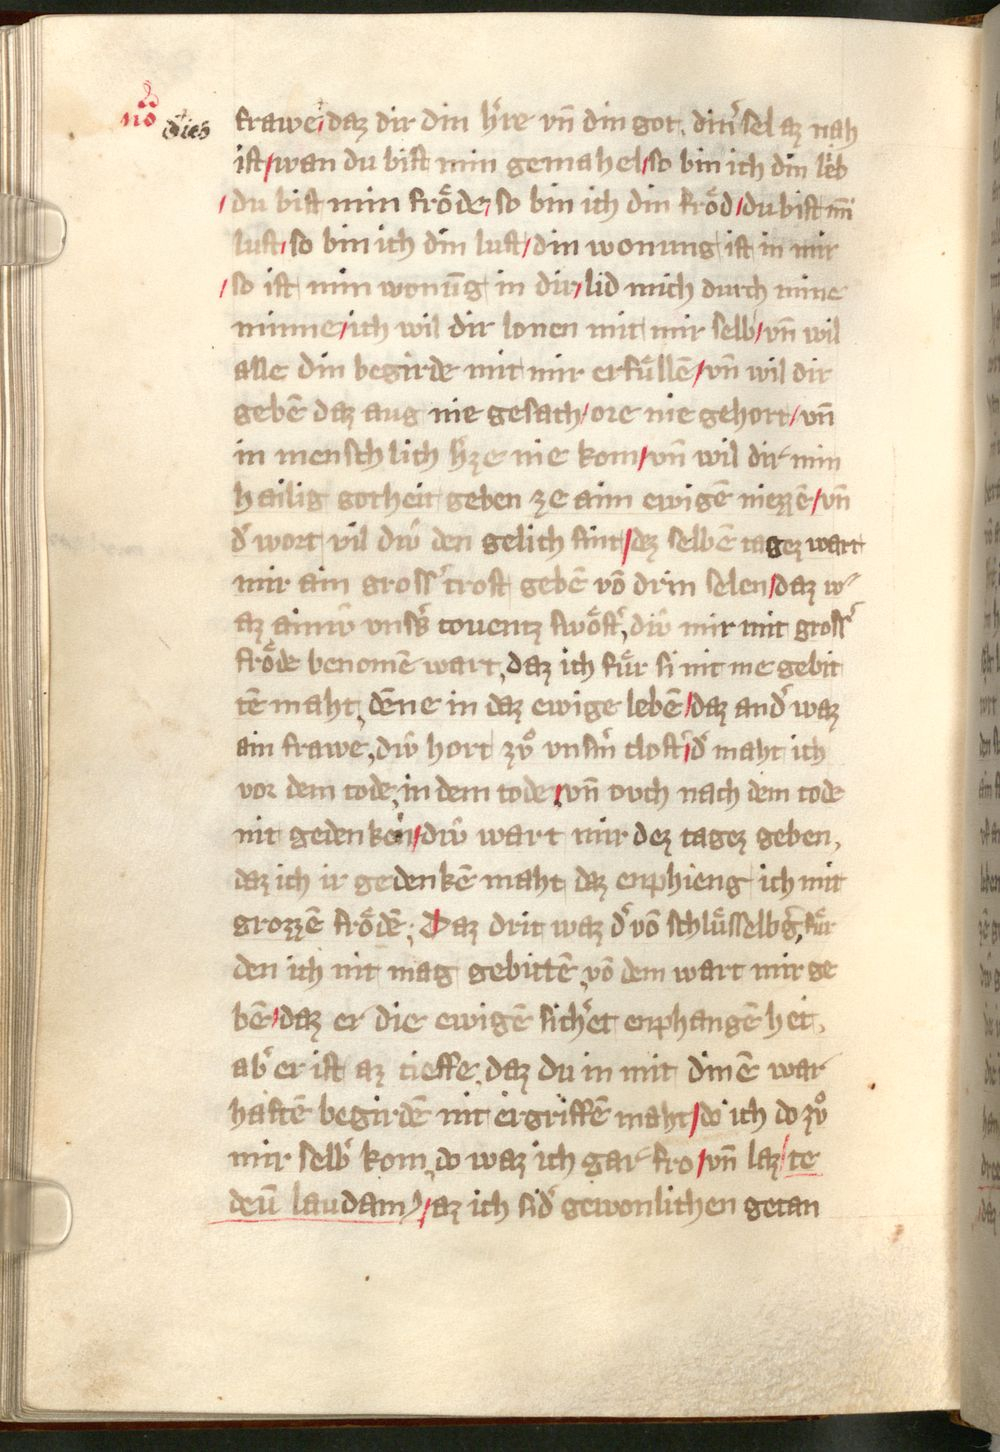 no dies
frawe / daz dir din h're vn̄ din got, din' sel az nah
ist / wan du bist min gemahel / so bin ich din lieb
/ du bist min frőde, so bin ich din frőd / du bist mī
lust / so bin ich din lust / din wonung ist in mir
/ so ist min wonūg in dir / lid mich durch mine
minne / ich wil dir lonen mit mir selb / vn̄ wil
alle din begirde mit mir erfűllē / vn̄ wil dir
gebē daz aug nie gesach / ore nie gehort / vn̄
in menschlich h'ze nie kom / vn̄ wil dir min
hailig gotheit geben ze aim ewigē niezzē / vn̄
d' wort vil diẘ den gelich sint / dez selbē tagez wart
mir ain gross' trost gebē vō drin selen / daz w
az ainiẘ vns's couentz swőst', diẘ mir mit gross'
frőde benomē wart, daz ich fűr si nit me gebit
tē maht, dēne in daz ewige lebē / daz and' waz
ain frawe, diẘ hort zů vns'm clost' / d' maht ich
vor dem tode, in dem tode / vn̄ ovch nach dem tode
nit gedenken / diẘ wart mir dez tagez geben,
daz ich ir gedenkē maht daz enphieng ich mit
grozzē frődē; Daz drit waz d' vō schlűsselb'g, fűr
den ich nit mag gebittē, vō dem wart mir ge
bē / daz er die ewigē sich'et enphangē het,
ab' er ist az tieffe, daz du in mit dinē war
haftē begirdē nit ergriffē maht / do ich do zů
mir selb' kom, do waz ich gar fro / vn̄ laz / te
deū laudam9 / az ich sid' gewonlichen getan